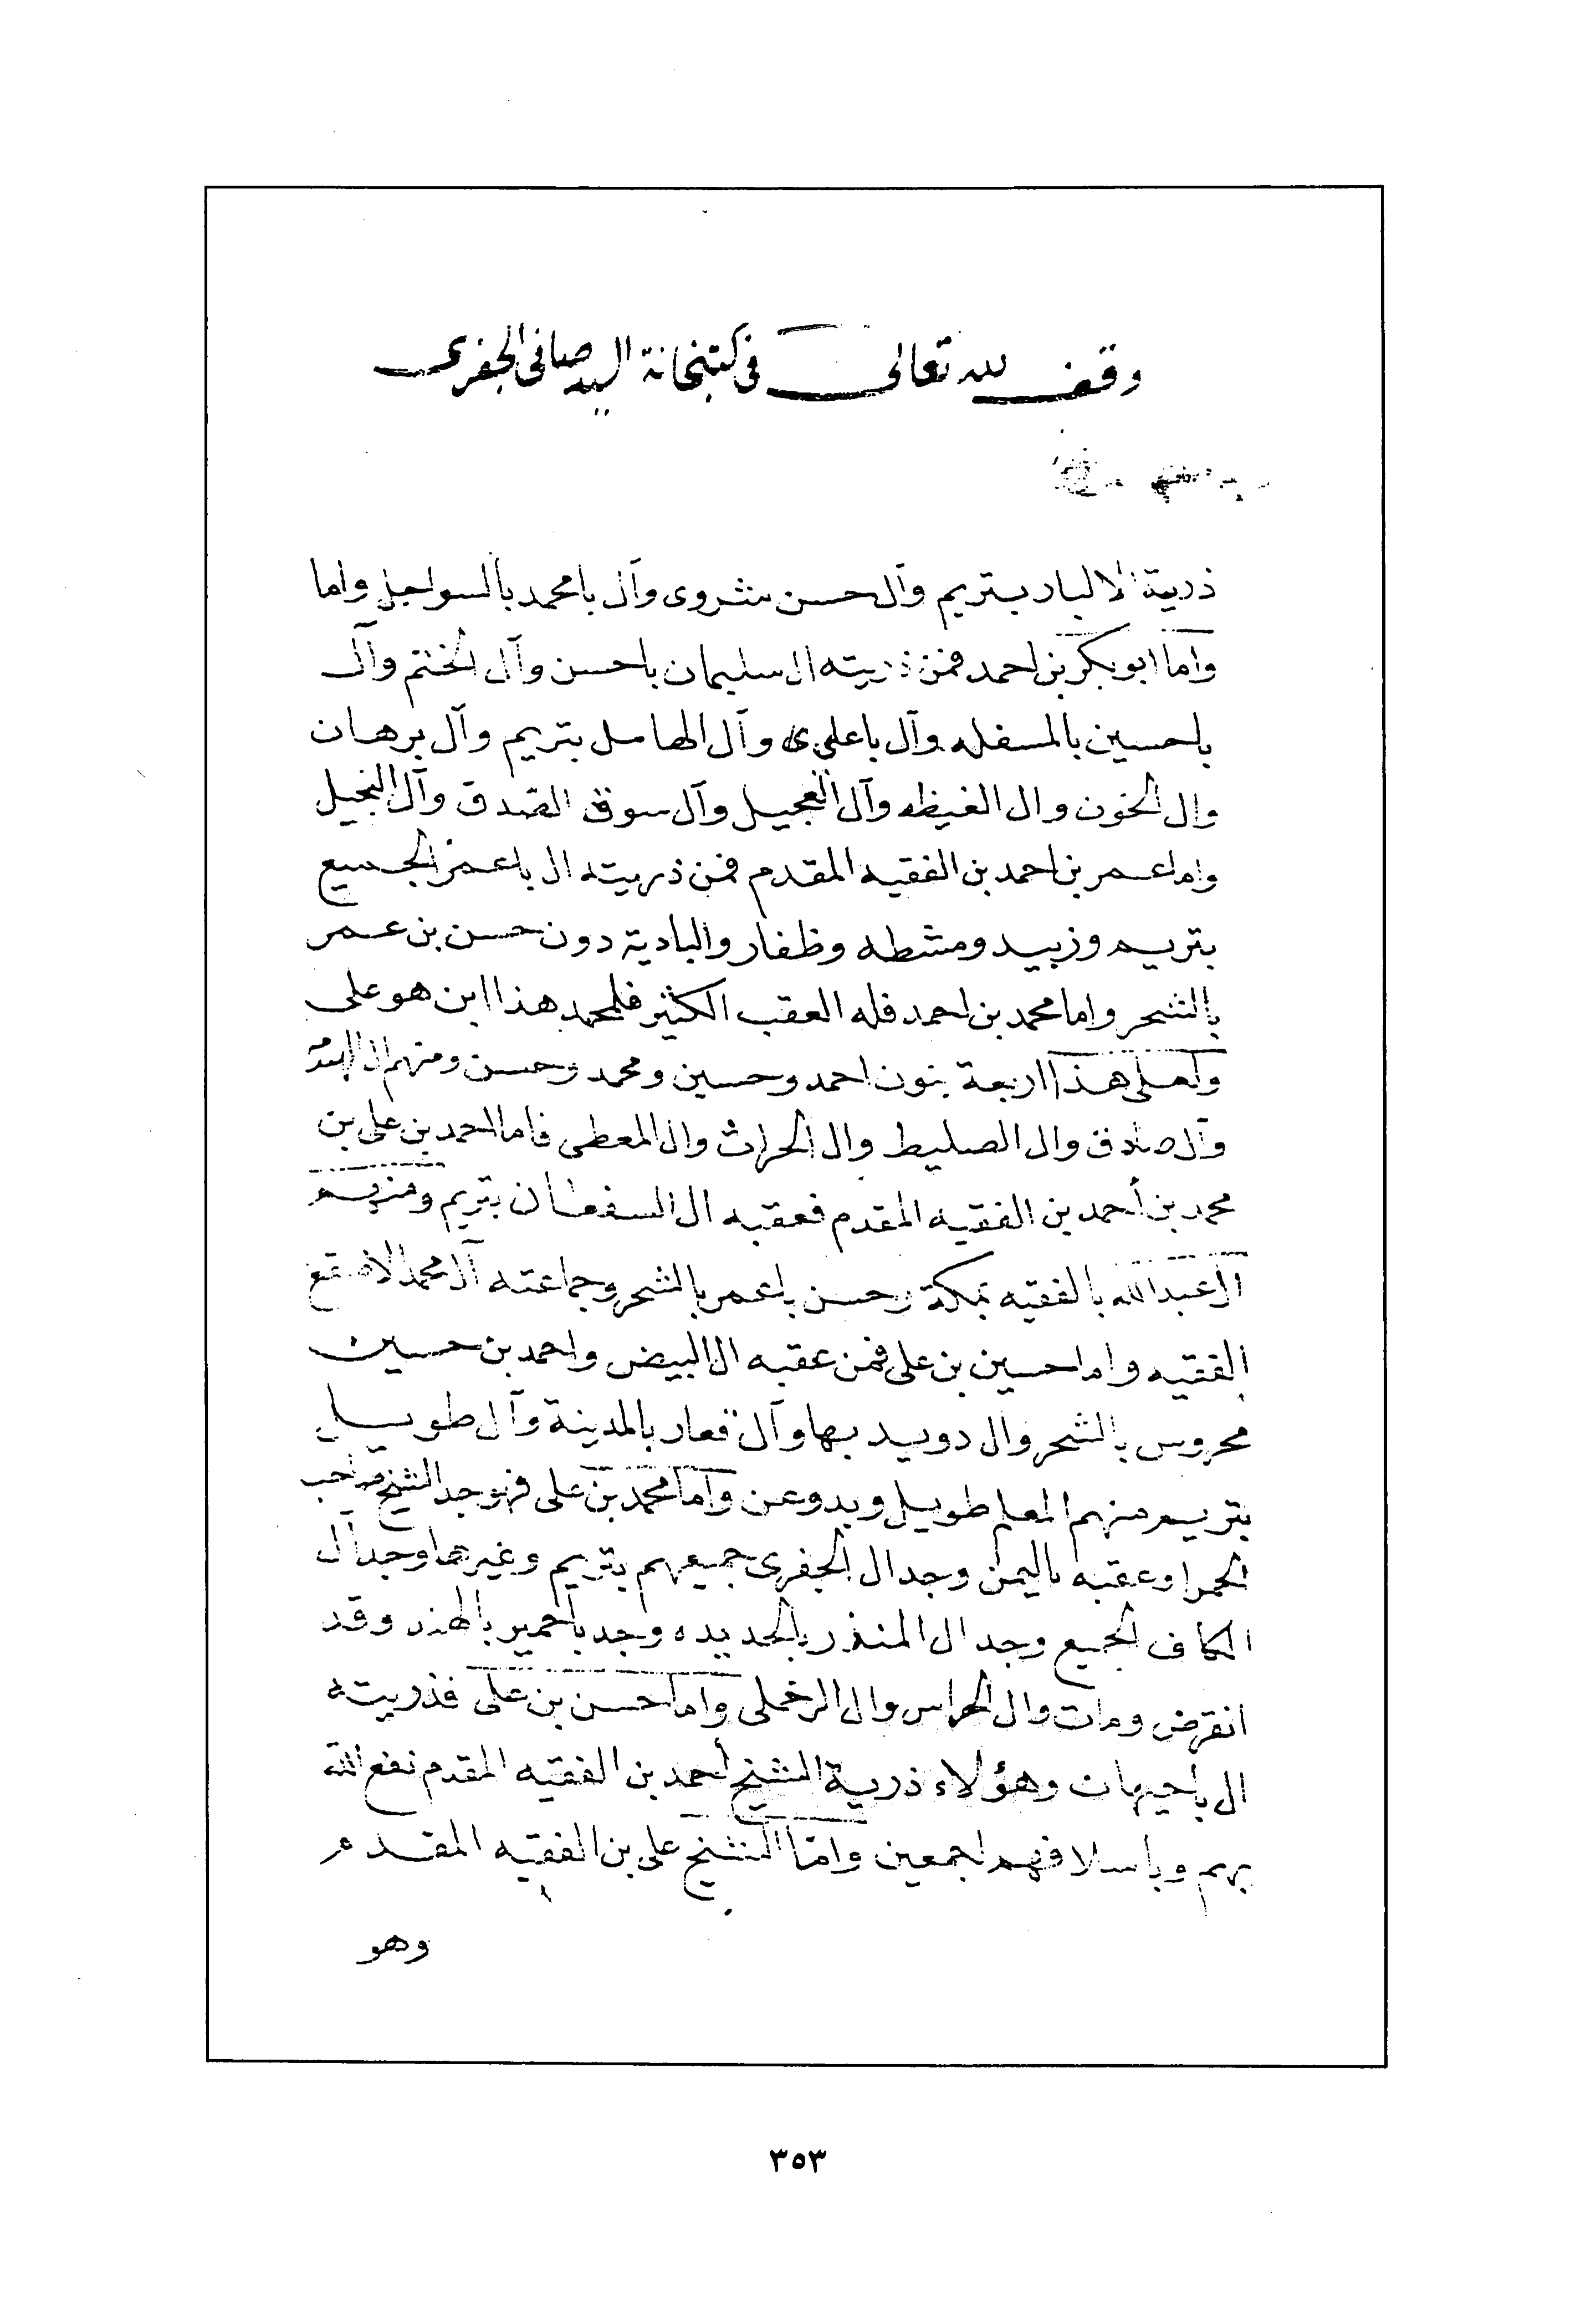 وقف لله تعالى في كتبخانة السيد صافي الجفري
ذرية الالباد بتريم وآل حسن شروى وآل بامحمد بالسواحل واما
واما ابوبكر بن احمد فمن ذريته ال سليمان باحسن وآل الختم وآل
باحسين بالمسفله وآل باعلوى وآل الهامل بتريم وآل برهان
وال الخون وال الغيظه وآل العجيل وآل سوق الصدق وآل النجيل
واما عمر بن احمد بن الفقيه المقدم فمن ذريته ال باعمر الجميع
بتريم وزبيد ومشطه وظفار والبادية دون حسن بن عمر
بالشحر واما محمد بن احمد فله العقب الكثير فلمحمد هذا ابن هو على
ولعلى هذا اربعة بنون احمد وحسين ومحمد وحسن ومنهم ال
وآل صادق وال الصليط وال الحراث وال المعطى فاما احمد بن على بن
محمد بن أحمد بن الفقيه المقدم فعقبه ال السقطان بتريم ومنهم
ال عبدالله بالفقيه بمكة وحسن باعمر بالشحر وجماعته آل محمد الاصقع
الفقيه واما حسين بن على فمن عقبه ال البيض واحمد بن حسين
محروس بالشحر وال دويد بها وآل قعار بالمدينة وآل طويل
بتريم منهم المعلم طويل وبدوعن واما محمد بن على فهو جد الشيخ صاحب
الحمرا وعقبه باليمن وجد ال الجفرى جميعهم بتريم وغيرها وجد آل
الكاف الجميع وجد ال المنذر بالحديده وجد باحمير بالهند وقد
انقرض ومات وال الحراس وال الرخلى واما حسن بن على فذريته
ال باحيهان وهؤلاء ذرية الشيخ أحمد بن الفقيه المقدم نفع الله
بهم وباسلافهم اجمعين وامّا الشيخ على بن الفقيه المقدم
وهو
٣٥٣